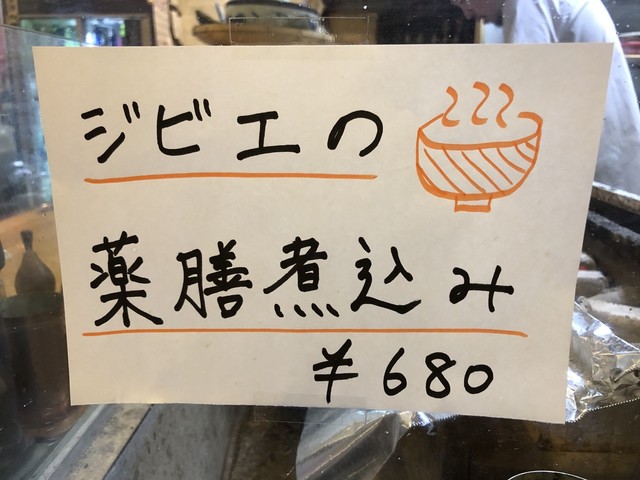 ジビエの
薬膳煮込み
¥680